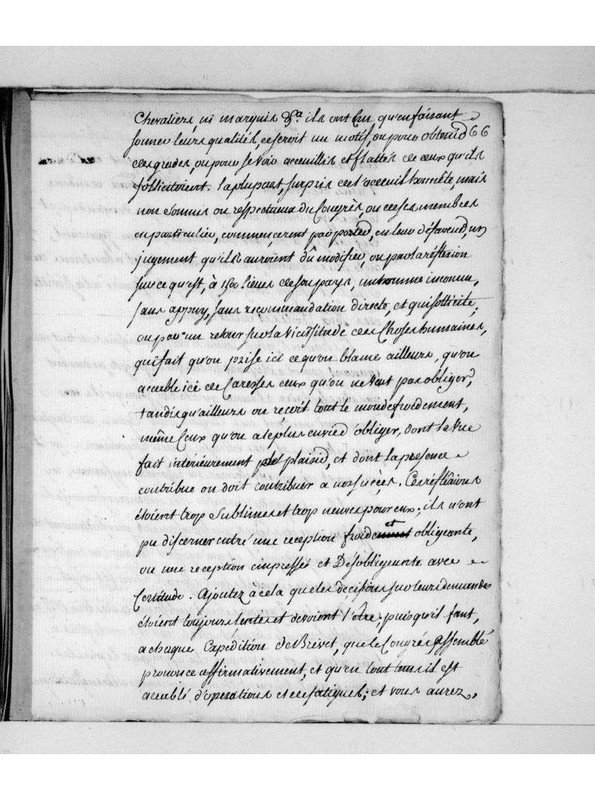 Chevaliers, ni marquis &.a ils ont cru qu'en faisant
sonner leurs qualités, ce seroit un motif, ou pour obtenir 66
des grades, ou pour se voir accueillis et flattés de ceux qu'ils
sollicitoient. la plupart, surpris de l'acceuil honnête, mais
non soumis ou respectueux du Congrès, ou de ses membres
en particulier, commencerent par porter, en leur défaveur, un
jugement qu'ils auroient dû modifier, ou par la réflexion
sur ce qu'est, à 1500 lieues de son pays, un homme inconnu,
sans appuy, sans recommandation directe, et qui sollicite;
ou par un retour sur la vicissitude des choses humaines,
qui fait qu'on prise ici ce qu'on blame ailleurs, qu'on
accable ici de Caresses ceux qu'on ne veut pas obliger,
tandis qu'ailleurs on reçoit tout le monde froidement,
même Ceux qu'on a le plus envie d'obliger, dont la vue
fait interieurement plaisir, et dont la présence
contribue ou doit contribuer a nos succès. Ces réflexions
étoient trop Sublimes et trop neuves pour eux; ils n'ont
pu discerner entre une reception froide et obligeante,
ou une reception empressée et Desobligeante avec
Certitude. Ajoutez à cela que les décisions sur leurs demandes
étoient toujours lentes et devoient l'être; puisqu'il faut,
a chaque Expédition de Brevet, que le Congrès assemblé
prononce affirmativement, et qu'en tout tems il est
accablé d'operations et de fatigues; et vous aurez,